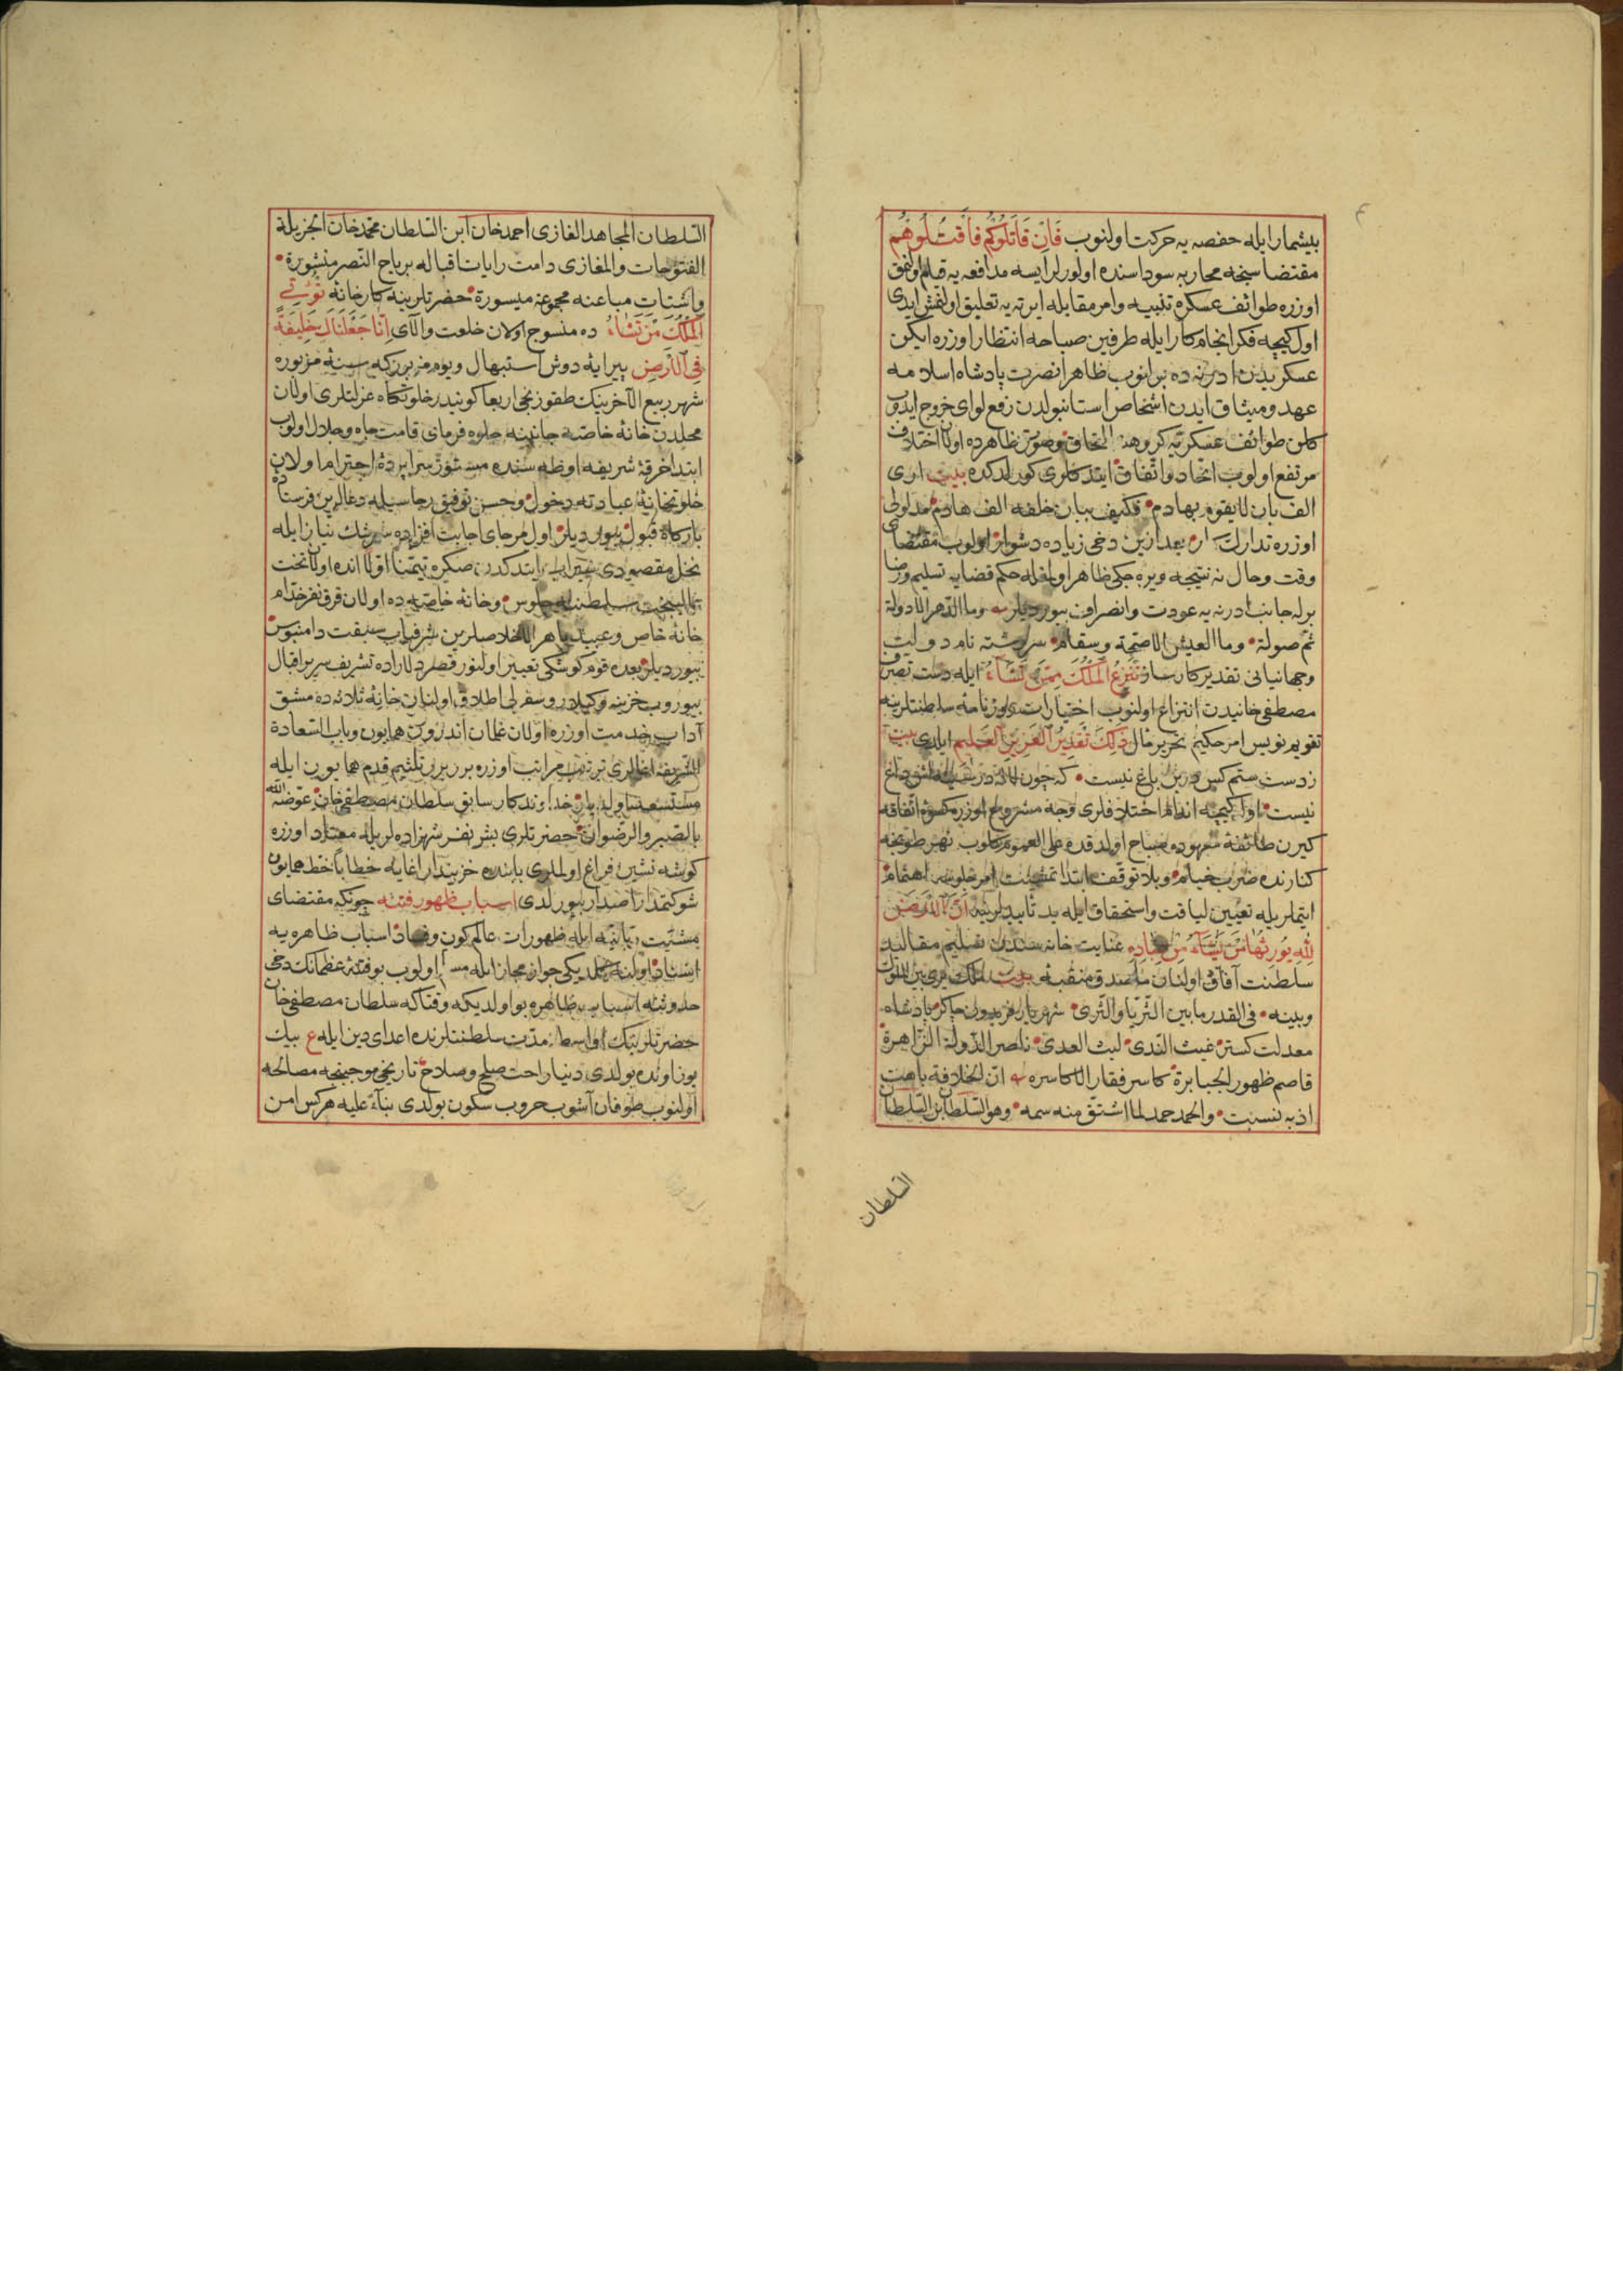 بیشمار ایله حفصه یه حرکت اولنوب فَاِنْ قَاتَلُوكُمْ فَاقْتُلُوهُمْ
مقتضاسنجه محاربه سوداسنده اولورلر ایسه مدافعه یه قیام اولنمق
اوزره طوائف عسکره تنبیه وامر مقابله ایرته یه تعلیق اولنمش ایدی
اول کیجه فکر انجام کار ایله طرفین صباحه انتظار اوزره ایکن
عسکریدن ادرنه ده بولنوب ظاهرا نصرت پادشاه اسلامه
عهد ومیثاق ایدن اشخاص استانبولدن رفع لوای خروج ایدوب
کلن طوائف عسکریه کروهنه التحاق وصورت ظاهرده اولان اختلاف
مرتفع اولوب اتحاد واتفاق ایتدکلری کورلدکده بیت اری
الف بان لا یقوم بهادم • فکیف ببان خلفه الف هادم • مدلولی
اوزره تدارک کار بعد ازین دخی زیاده دشوار اولوب مقتضای
وقت وحال نه نتیجه ویره جکی ظاهر اولمغله حکم قضایه تسلیم ورضا
برله جانب ادرنه یه عودت وانصراف بیوردیلر وما الدهر الا دولة
ثم صولة • وما العیش الا صحة وسقام • سررشته نام دولت
وجهانبانی تقدیر کارساز تَنْزِعُ الْمُلْكَ مِمَّنْ تَشَاءُ ایله دست تصرف
مصطفی خانیدن انتزاع اولنوب اختیارات روزنامه سلطنتلرینه
تقویم نویس امر حکیم تحریر مآل ذَلِكَ تَقْدِيرُ الْعَزِيزِ الْعَلِيمِ ایلدی بیت
زدست ستم کس درین باغ نیست • که چون لاله در سینه اش داغ
نیست • اول کیجه اندفاع اختلافلری وجه مشروح اوزره کسوه اتفاقه
کیرن طائفه معهوده صباح اولدقده علی العموم کلوب نهر طونجه
کنارنده ضرب خیام • وبلا توقف ابتدا تمشیت امر جلوسه اهتمام
ایتملریله تعیین لیاقت واستحقاق ایله ید تأییدلرینه اَنَّ الْاَرْضَ
لِلّٰهِ يُورِثُهَا مَنْ يَشَاءُ مِنْ عِبَادِهِ عنایت خانه سندن تسلیم مقالید
سلطنت آفاق اولنان ماصدق منقبه بیت ملک یری بین الملوک
وبینه • فی القدر ما بین الثریا والثری • شهریار فریدون چاکر پادشاه
معدلت کستر غیث الندی • لیث العدی • ناصر الدولة الزاهرة
قاصم ظهور الجبابرة • کاسر فقار الاکاسره ان الخلافة باهت
اذ به نسبت • والحمد حمد لما اشتق منه سمه • وهو السلطان بن السلطان
السلطان
السلطان المجاهد الغازی احمد خان ابن السلطان محمد خان الجزیلة
الفتوحات والمغازی دامت رایات اقباله بریاح النصر منشورة •
واشتات مباعنه مجموعة میسورة • حضرتلرینه کارخانه تُؤْتِي
الْمُلْكَ مَنْ تَشَاءُ ده منسوج اولان خلعت والای اِنَّا جَعَلْنَاكَ خَلِيفَةً
فِي الْاَرْضِ پیرایه دوش استبهال ویوم مزبور که سنه مزبوره
شهر ربیع الآخرینک طقوزنجی اربعا کونیدر خلوتکاه عزلتلری اولان
محلدن خانه خاصه جانبنه جلوه فرمای قامت جاه وجلال اولوب
ابتدا خرقه شریفه اوطه سنده مستور سراپرده احترام اولان
خلوتخانه عبادته دخول • وحسن توفیق رجاسیله دعالرین فرستاده
بارکاه قبول بیوردیلر • اول مرجای اجابت افزاده سرشک نیاز ایله
نخل مقصودی سیراب ایتدکدن صکره تیمنا اولا انده اولان تخت
همایبخت سلطنته جلوس • وخانه خاصه ده اولان قرق نفر خدام
خانه خاص وعبید باهر الاخلاصلرین شرفیاب سبقت دامنبوس
بیوردیلر • بعده قوم کوشکی تعبیر اولنور قصر دلاراده تشریف سریر اقبال
بیوروب خزینه وکیلار وسفرلی اطلاق اولنان خانه ثلاثه ده مشق
آداب خدمت اوزره اولان غلمان اندرون همایون وباب السعادة
الشریفه اغالری ترتیب مراتب اوزره برر برر تلثیم قدم همایون ایله
مستسعد اولدیلر • خداوندکار سابق سلطان مصطفی خان عوضه الله
بالصبر والرضوان • حضرتلری بش نفر شهزاده لریله معتاد اوزره
کوشه نشین فراغ اولملری بابنده خزینه دار اغایه خطابا خط همایون
شوکتمدار اصدار بیورلدی اسباب ظهور فتنه چونکه مقتضای
مشیت ربانیه ایله ظهورات عالم کون وفساد • اسباب ظاهره یه
اسناد اولنه کلدیکی جواز مجاز ایله اولوب بو فتنه عظمانک دخی
حدوثنه اسباب ظاهره بو اولدیکه وقتاکه سلطان مصطفی خان
حضرتلرینک اواسط مدت سلطنتلرنده اعدای دین ایله ع بیک
یوز اونده بولدی دنیا راحت صلح وصلاح • تاریخی موجبنجه مصالحه
اولنوب طوفان آشوب حروب سکون بولدی بناء علیه هرکس امن